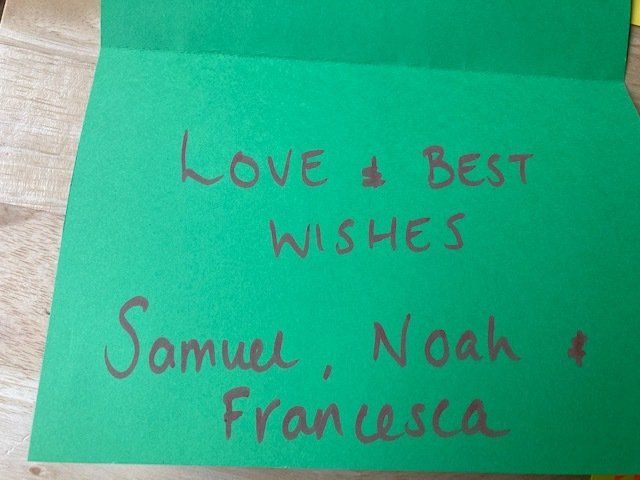 LOVE & BEST
WISHES
Samuel, Noah &
Francesca